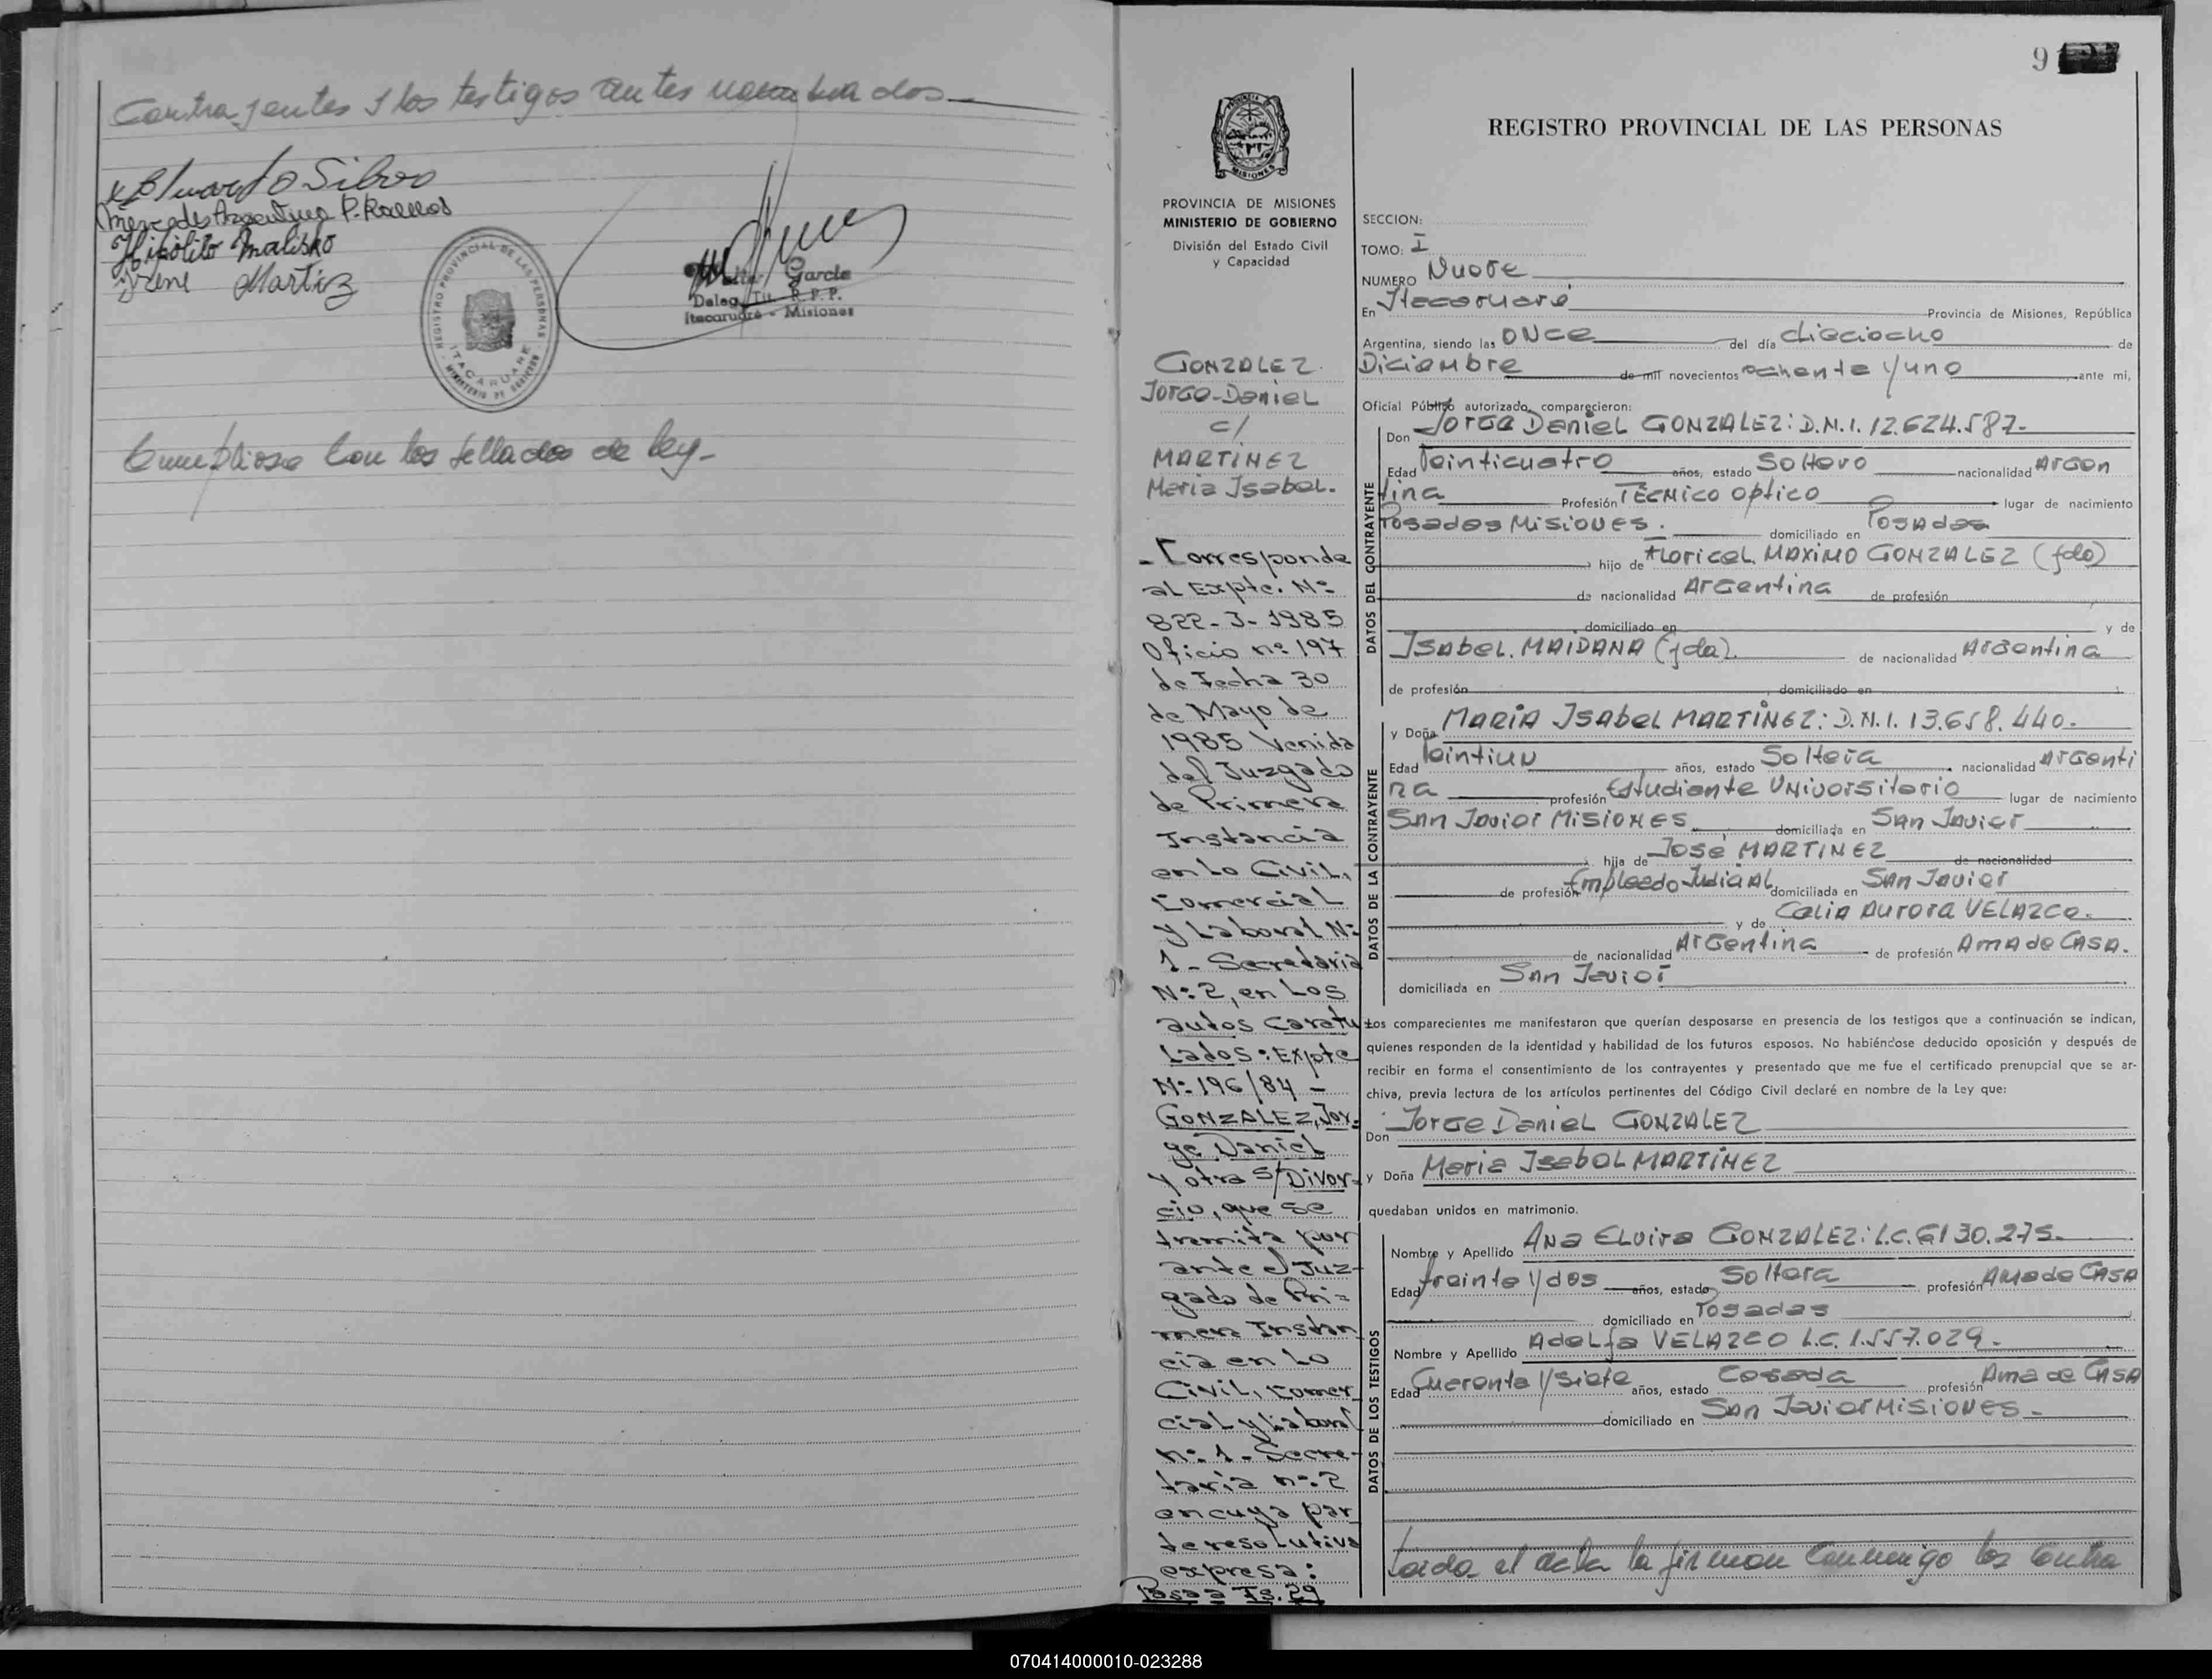 Contrayentes y los testigos antes nombrados
Eduardo Silva
Mercedes Argentina P. Ramos
Hipólito Malisko
Irene Martiz
REGISTRO PROVINCIAL DE LAS PERSONAS
ITACARUARE
MINISTERIO DE GOBIERNO
García
Deleg. Tit. R.P.P.
Itacaruaré - Misiones
Cumpliose con los sellados de ley.-
9
PROVINCIA DE MISIONES
MINISTERIO DE GOBIERNO
División del Estado Civil
y Capacidad
GONZALEZ
Jorge-Daniel
c/
MARTÍNEZ
Maria Isabel.
- Corresponde
al Expte. Nº
822-J-1985
Oficio nº 197
de Fecha 30
de Mayo de
1985 Venida
del Juzgado
de Primera
Instancia
en Lo Civil,
Comercial
y Laboral Nº
1 - Secretaria
Nº 2, en Los
autos Caratu
Lados: Expte
Nº 196/84 -
GONZALEZ, Jor-
ge Daniel
y otra S/ Divor-
cio, que se
tramita por
ante el Juz-
gado de Pri-
mera Instan
cia en Lo
Civil, Comer
cial y Laboral
nº 1 - Secre-
taria nº 2
en cuya par
te resolutiva
expresa:
Pasa a Fs. 29
REGISTRO PROVINCIAL DE LAS PERSONAS
SECCION:
TOMO: I
NUMERO Nueve
En Itacaruaré Provincia de Misiones, República
Argentina, siendo las ONce del día dieciocho de
Diciembre de mil novecientos ochenta y uno ante mi,
Oficial Público autorizado, comparecieron:
DATOS DEL CONTRAYENTE
Don Jorge Daniel GONZALEZ: D.N.I. 12.624.587.-
Edad Veinticuatro años, estado Soltero nacionalidad Argen
tina Profesión TÉCNICO Optico lugar de nacimiento
Posadas Misiones. domiciliado en Posadas
hijo de Floricel MAXIMO GONZALEZ (fdo)
de nacionalidad Argentina de profesión
domiciliado en y de
ISABEL MAIDANA (fda). de nacionalidad Argentina
de profesión domiciliado en
DATOS DE LA CONTRAYENTE
y Doña MARIA ISABEL MARTÍNEZ: D.N.I. 13.658.440.-
Edad Veintiun años, estado Soltera nacionalidad Argenti
na profesión Estudiante Universitario lugar de nacimiento
San Javier Misiones domiciliada en San Javier
hija de José MARTINEZ de nacionalidad
de profesión Empleado Judicial domiciliada en San Javier
y de Celia Aurora VELAZCO.
de nacionalidad Argentina de profesión Ama de Casa.
domiciliada en San Javier
Los comparecientes me manifestaron que querían desposarse en presencia de los testigos que a continuación se indican,
quienes responden de la identidad y habilidad de los futuros esposos. No habiéndose deducido oposición y después de
recibir en forma el consentimiento de los contrayentes y presentado que me fue el certificado prenupcial que se ar-
chiva, previa lectura de los artículos pertinentes del Código Civil declaré en nombre de la Ley que:
Don Jorge Daniel GONZALEZ
y Doña Maria Isabel MARTÍNEZ
quedaban unidos en matrimonio.
DATOS DE LOS TESTIGOS
Nombre y Apellido Ana Elvira GONZALEZ: L.C. 6130.275.
Edad treinta y dos años, estado Soltera profesión Ama de Casa
domiciliado en Posadas
Nombre y Apellido Adelfa VELAZCO L.C. 1.557.029.-
Edad Cuarenta y siete años, estado Casada profesión Ama de Casa
domiciliado en San Javier Misiones.-
Leida el acta la firman conmigo los contra
070414000010-023288